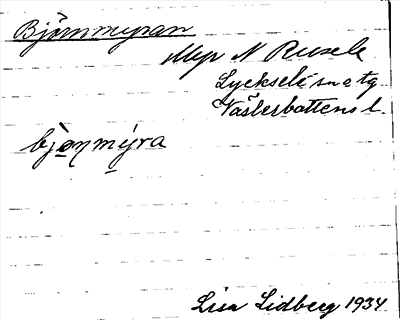 Björnmyran
Myr N Rusele
Lycksele sn o tg
Västerbottens l.
bjö̱ṇmýra
Lisa Lidberg 1934